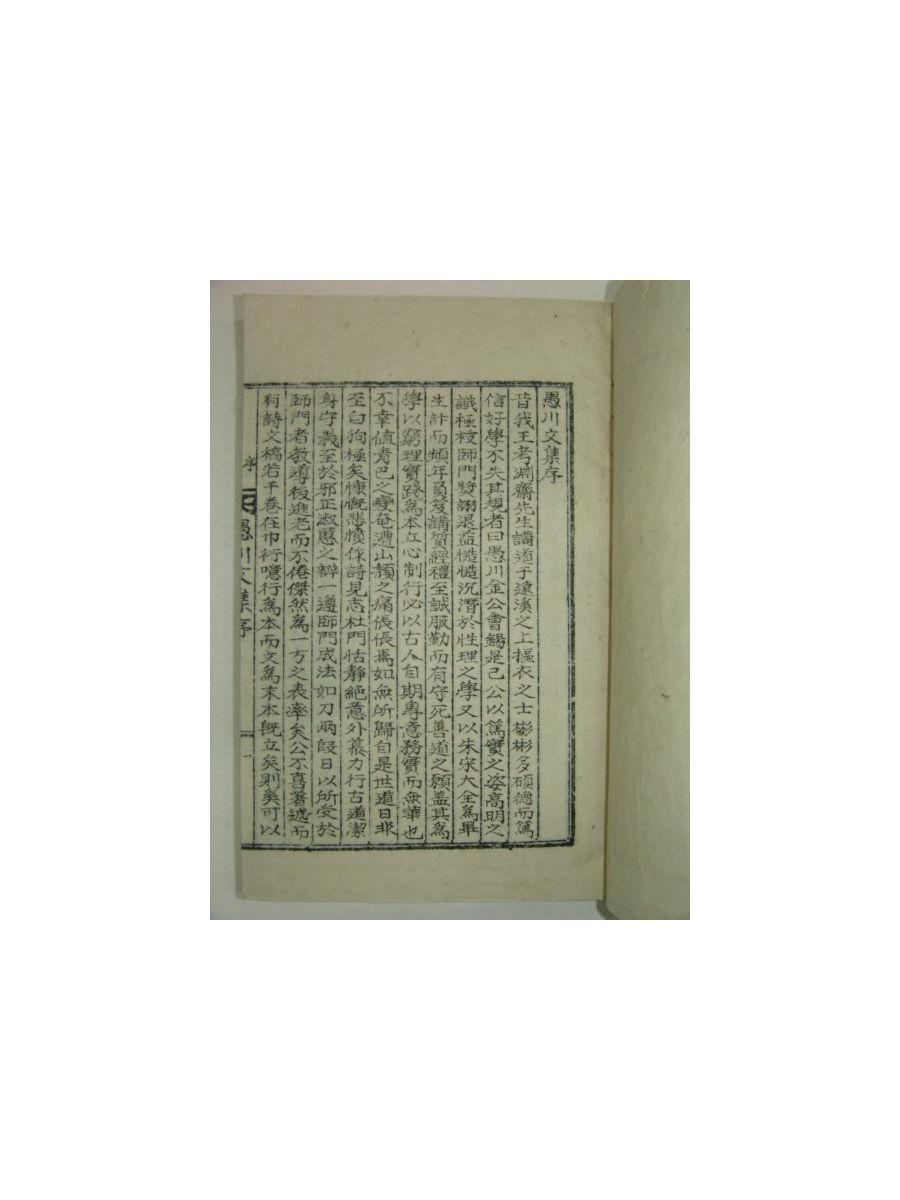 愚川文集序
昔我王考淵齋先生講道于遠溪之上摳衣之士彬彬多碩德而篤
信好學不失其規者曰愚川金公會錫是已公以篤實之姿高明之
識極被師門奬詡退益慥慥沉潛於性理之學又以朱宋大全爲畢
生計而頻年負笈講質經禮至誠服勤而有守死善道之願盖其爲
學以窮理實踐爲本立心制行必以古人自期專意務實而無華也
不幸値靑巴之變奄遭山頹之痛倀倀焉如無所歸自是世道日非
至白狗極矣慷慨悲憤作詩見志杜門恬靜絶意外慕力行古道潔
身守義至於邪正淑慝之辨一遵師門成法如刀兩段日以所受於
師門者敎導後進老而不倦傑然爲一方之表率矣公不喜著述而
有詩文稿若干卷在巾衍噫行爲本而文爲末本旣立矣則奚可以
序
愚川文集序
一